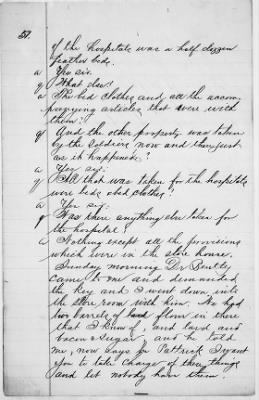 57.
of the hospitals was a half dozzen
feather beds.
a Yes sir.
q What else?
a The bed clothes and all the accom
panying articles that were with
them?
q And the other property was taken
by the soldiers now and then just
as it happened?
a Yes sir.
q All that was taken for the hospitals
were beds & bed clothes?
a Yes sir.
q Was there anything else taken for
the hospital?
a Nothing except all the provisions
which were in the store house.
Sunday morning Dr.
came to me and demanded
the key and I went down into
the store room with him. We had
two barrels of flour in there
that I knew of, and lard and
bacon & sugar and he told
me, now says he Pattrick I want
you to take charge of these things
and let nobody have them.